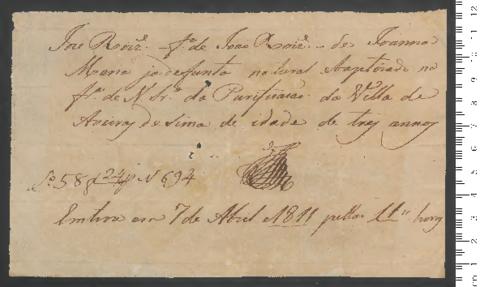 Joze Roiz. fº. de Joao Roiz. e de Joanna
Maria ja defunta natural Baptizado na
fª. de N. Srª. da Purificacao da Villa de
de sima de idade de trez annos
58 24 Nº 694
Entrou em 7 de Abril 1811 pellas 11 horas